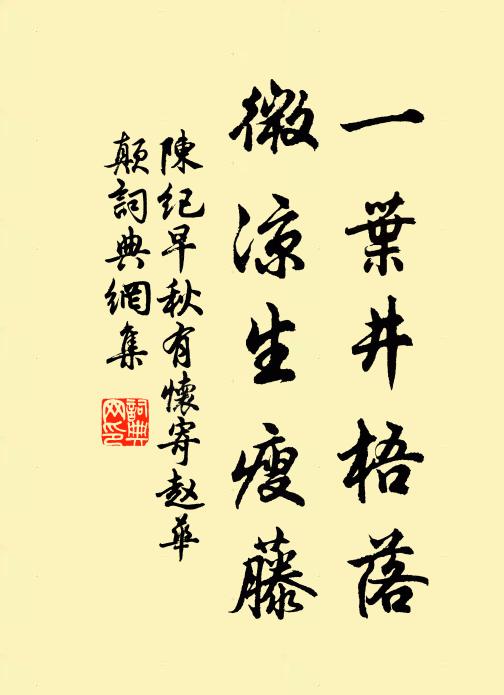 一葉井梧落
微涼生瘦藤
陳紀早秋有懷寄趙華
顛詞典網集
詞典網印